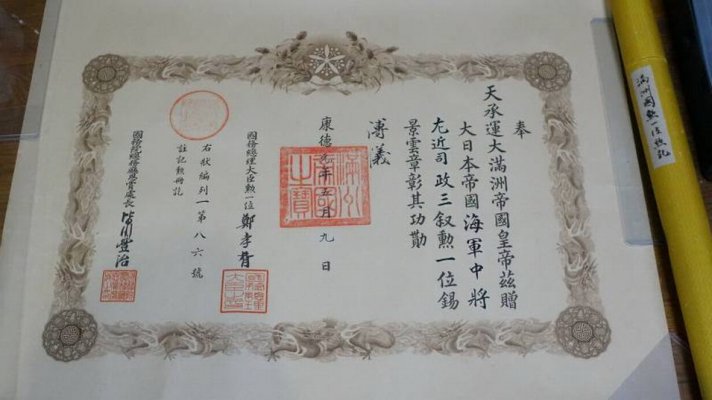 奉
天承運大滿洲帝國皇帝茲贈
大日本帝國海軍中將
左近司政三叙勲一位錫
景雲章彰其功勛
溥儀
康德元年五月九日
國務總理大臣勲一位 鄭孝胥
右狀編列一第八六號
註記勲冊訖
國務院總務廳恩賞處長 皆川豐治
滿洲國勲一位勲記